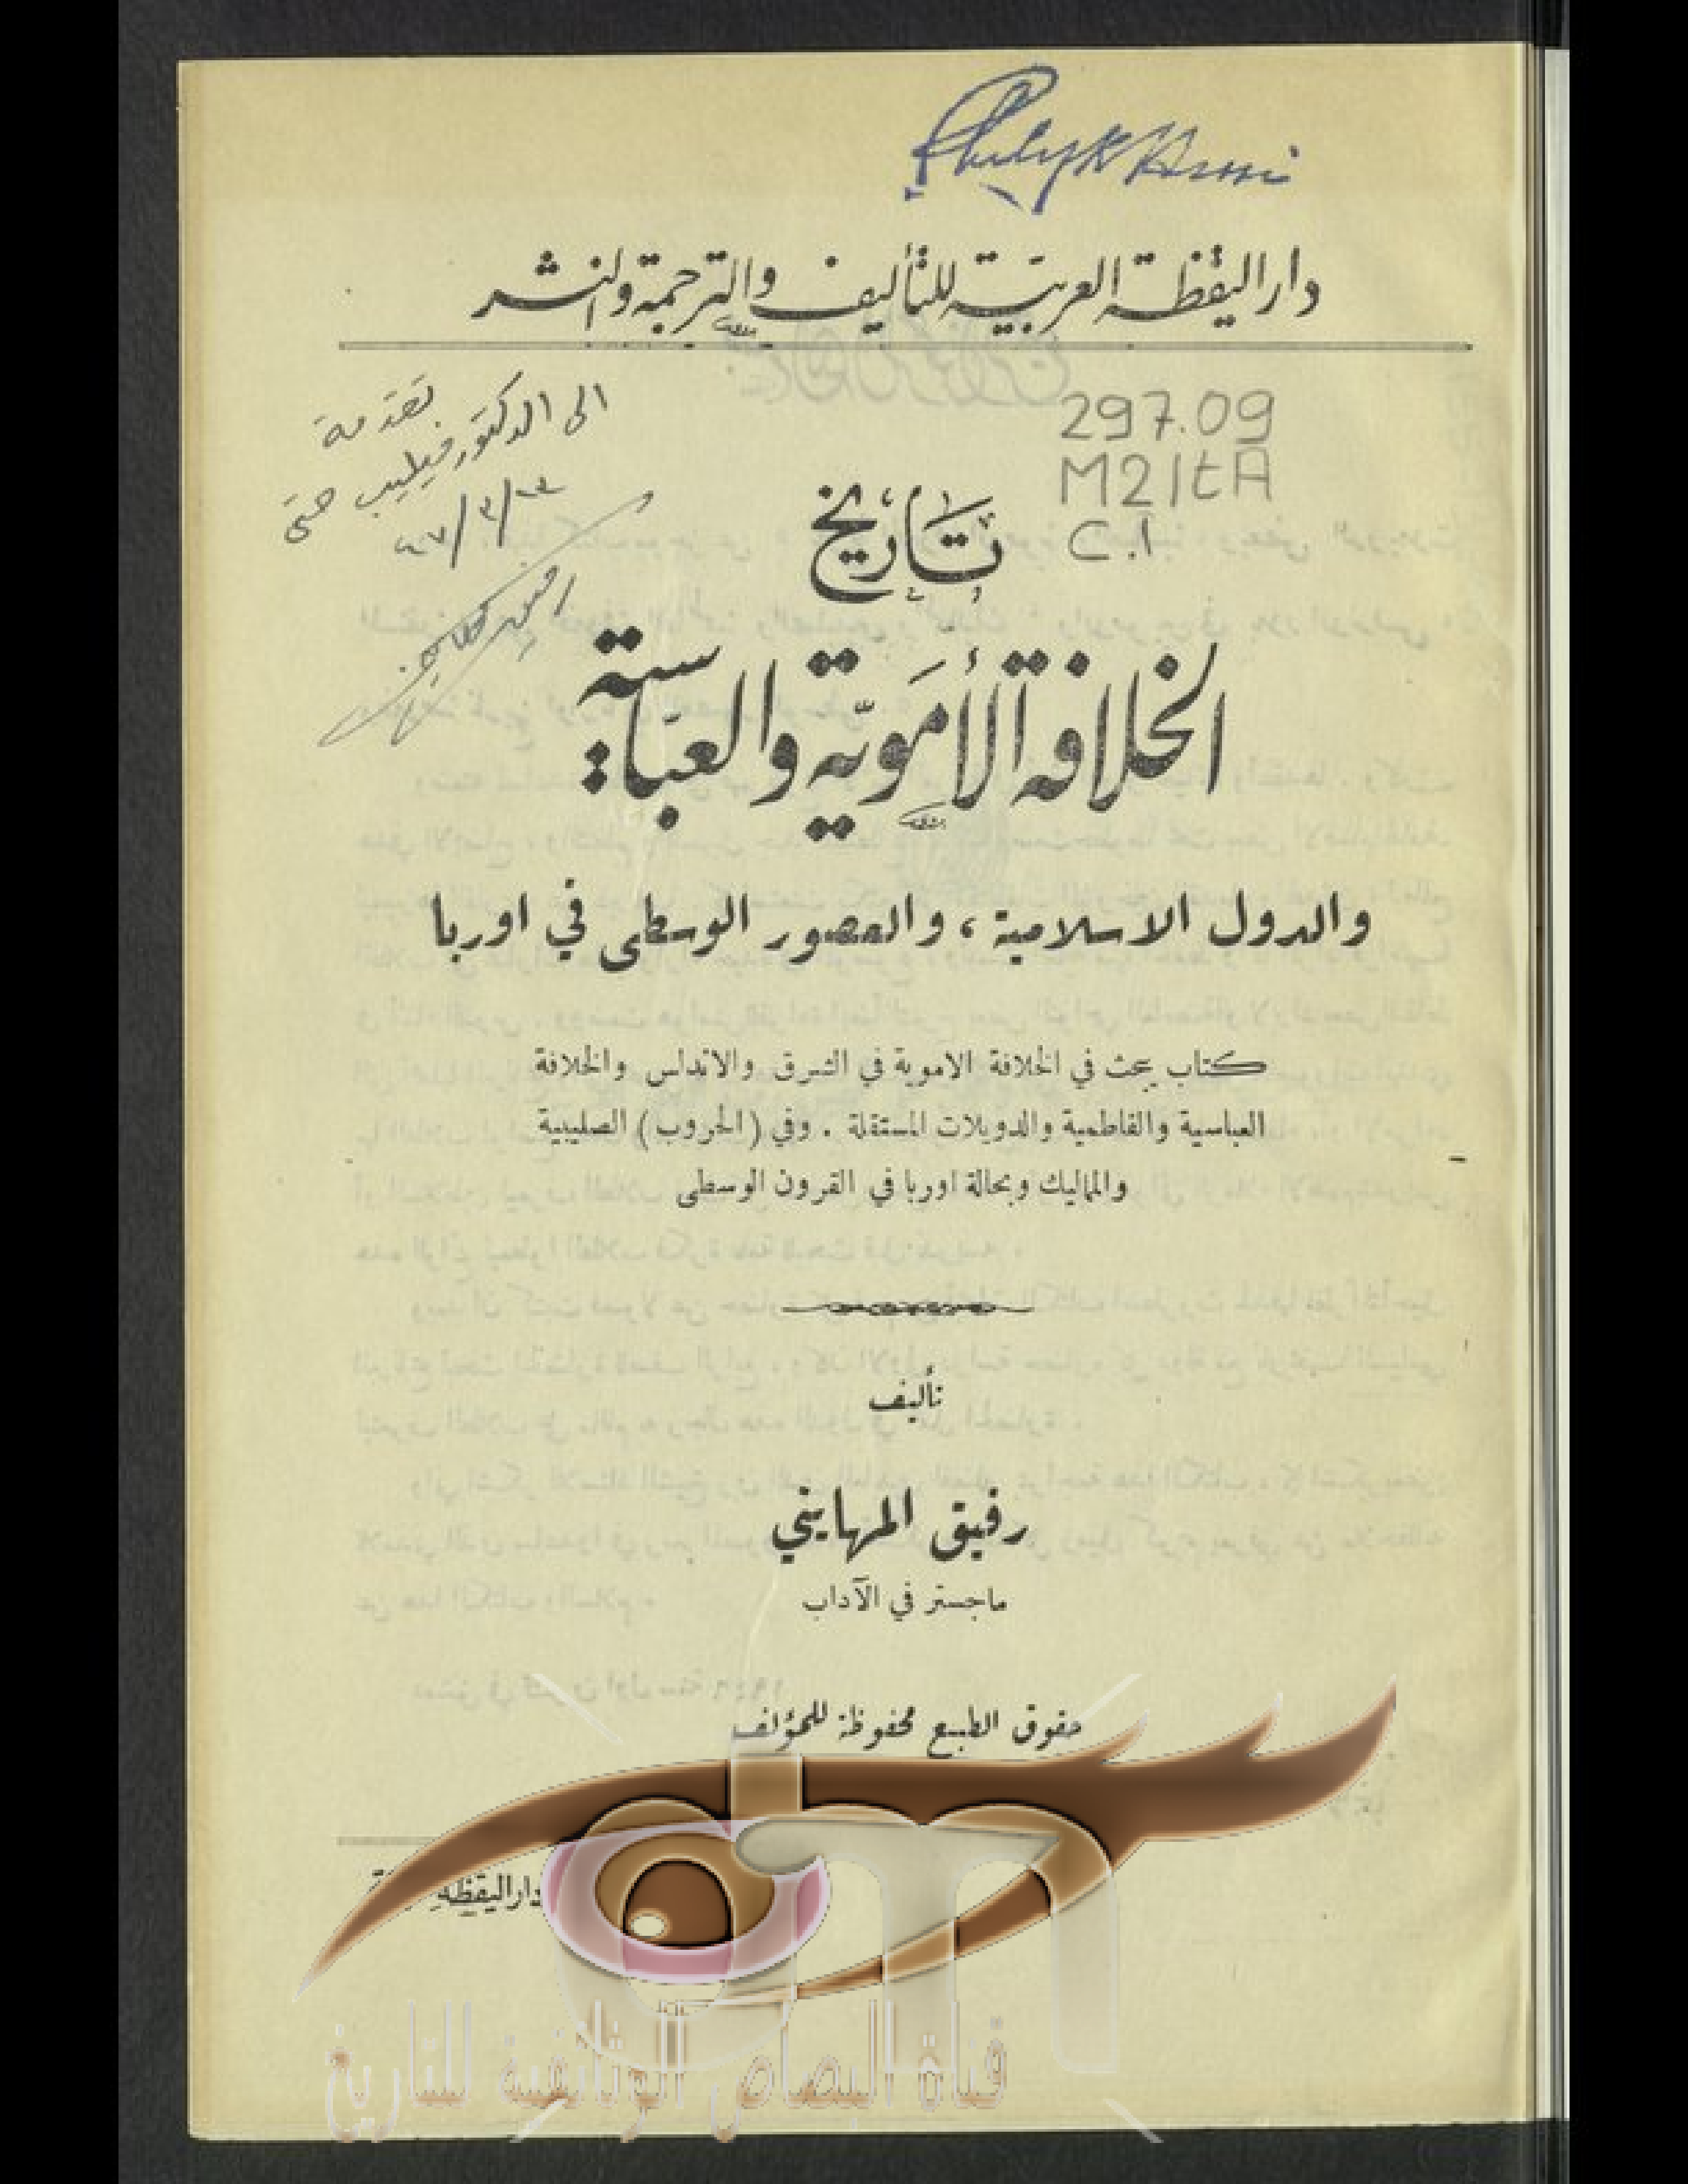 دار اليقظة العربية للتأليف والترجمة والنشر
تقدمة
الى الدكتور فيليب حتى
297.09
M21tA
C.1
تاريخ
الخلافة الأموية والعباسية
والدول الاسلامية ، والعصور الوسطى في اوربا
كتاب يبحث في الخلافة الاموية في الشرق والاندلس والخلافة
العباسية والفاطمية والدويلات المستقلة . وفي ( الحروب ) الصليبية
والمماليك وبحالة اوربا في القرون الوسطى
تأليف
رفيق المهايني
ماجستر في الآداب
حقوق الطبع محفوظة للمؤلف
دار اليقظة
قناة البصاص الوثائقية للتاريخ